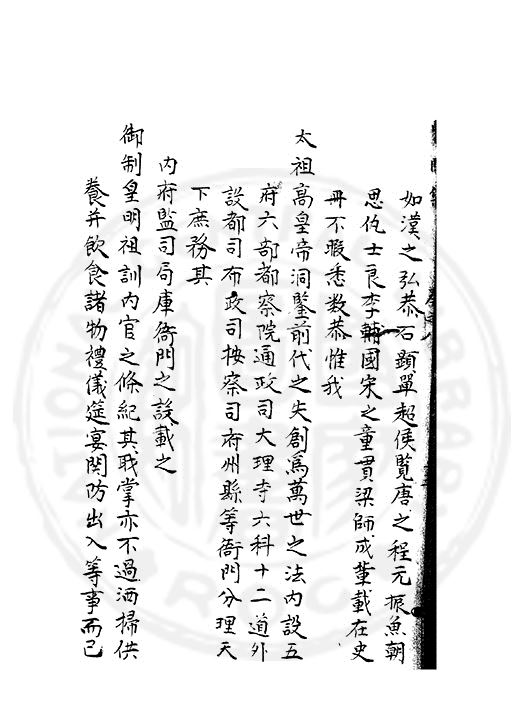 如漢之弘恭石顯單超侯覽唐之程元振魚朝
恩仇士良李輔國宋之童貫梁師成輩載在史
冊不暇悉数恭惟我
太祖高皇帝洞鑒前代之失創為萬世之法内設五
府六部都察院通政司大理寺六科十二道外
設都司布政司按察司府州縣等衙門分理天
下庶務其
内府監司局庫衙門之設載之
御制皇明祖訓内官之條紀其職掌亦不過洒掃供
養并飲食諸物禮儀筵宴関防出入等事而已